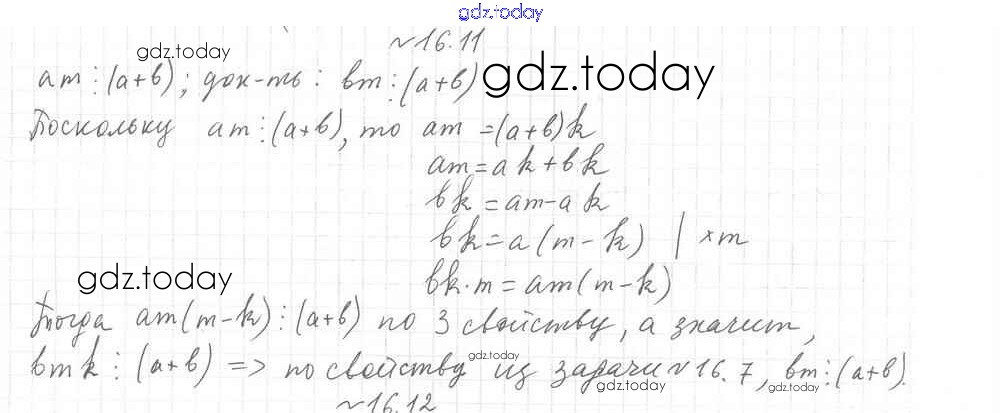 gdz.today
№16.11
gdz.today
am ⋮ (a+b); док-ть: bm ⋮ (a+b)
gdz.today
Поскольку am ⋮ (a+b), то am =(a+b)k
am=ak+bk
bk=am-ak
bk=a(m-k) | ×m
gdz.today
bk·m=am(m-k)
Тогда am(m-k) ⋮ (a+b) по 3 свойству, а значит,
gdz.today
bmk ⋮ (a+b) => по свойству из задачи №16.7, bm ⋮ (a+b).
gdz.today
gdz.today
№16.12